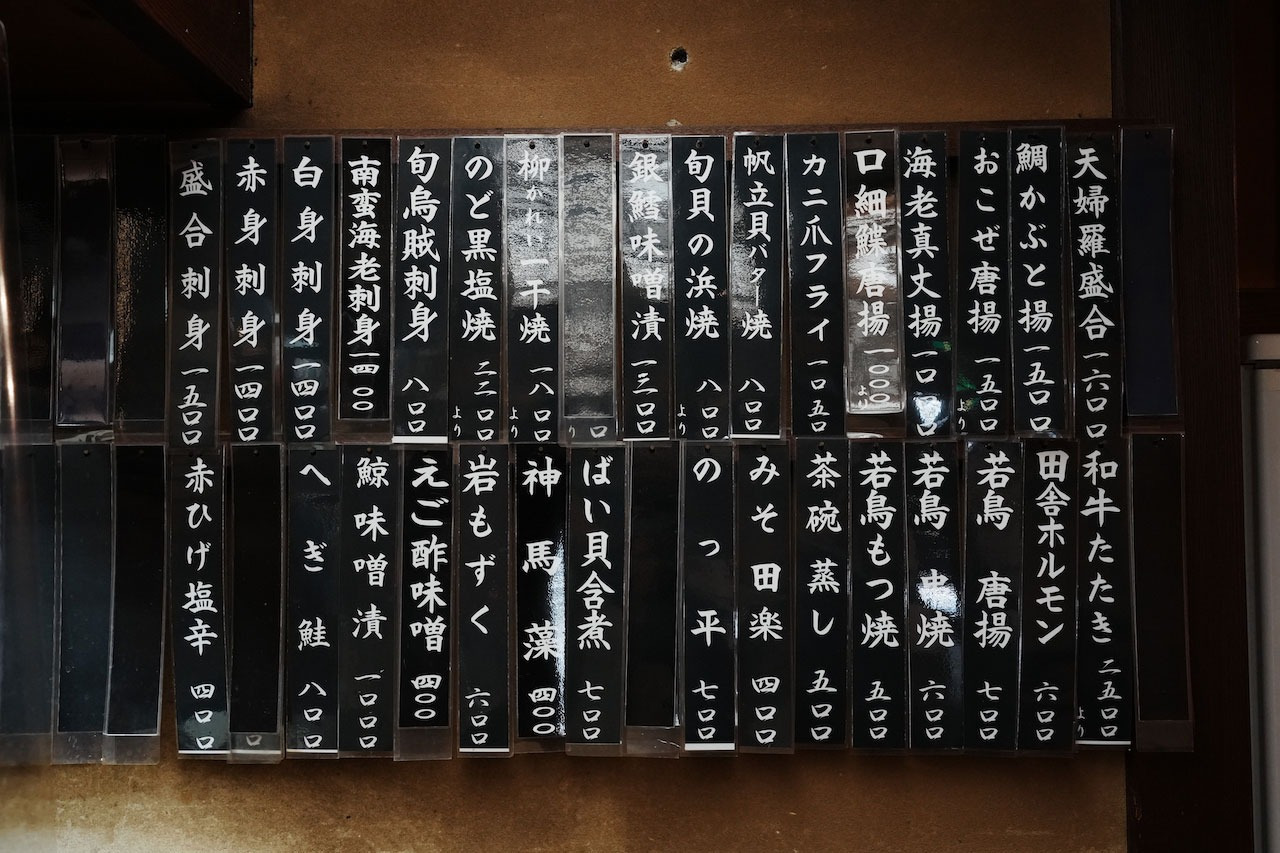 天婦羅盛合 一六〇〇
鯛かぶと揚 一五〇〇
おこぜ唐揚 一五〇〇より
海老真丈揚 一〇〇〇
口細鰈唐揚 一〇〇〇より
カニ爪フライ 一〇五〇
帆立貝バター焼 八〇〇
旬貝の浜焼 八〇〇より
銀鱈味噌漬 一三〇〇
柳かれい一干焼 一八〇〇より
のど黒塩焼 二二〇〇より
旬烏賊刺身 八〇〇
南蛮海老刺身 一四〇〇
白身刺身 一四〇〇
赤身刺身 一四〇〇
盛合刺身 一五〇〇
和牛たたき 二五〇〇より
田舎ホルモン 六〇〇
若鳥 唐揚 七〇〇
若鳥 串焼 六〇〇
若鳥もつ焼 五〇〇
茶碗蒸し 五〇〇
みそ田楽 四〇〇
のっ平 七〇〇
ばい貝含煮 七〇〇
神馬藻 四〇〇
岩もずく 六〇〇
えご酢味噌 四〇〇
鯨味噌漬 一〇〇〇
へぎ鮭 八〇〇
赤ひげ塩辛 四〇〇